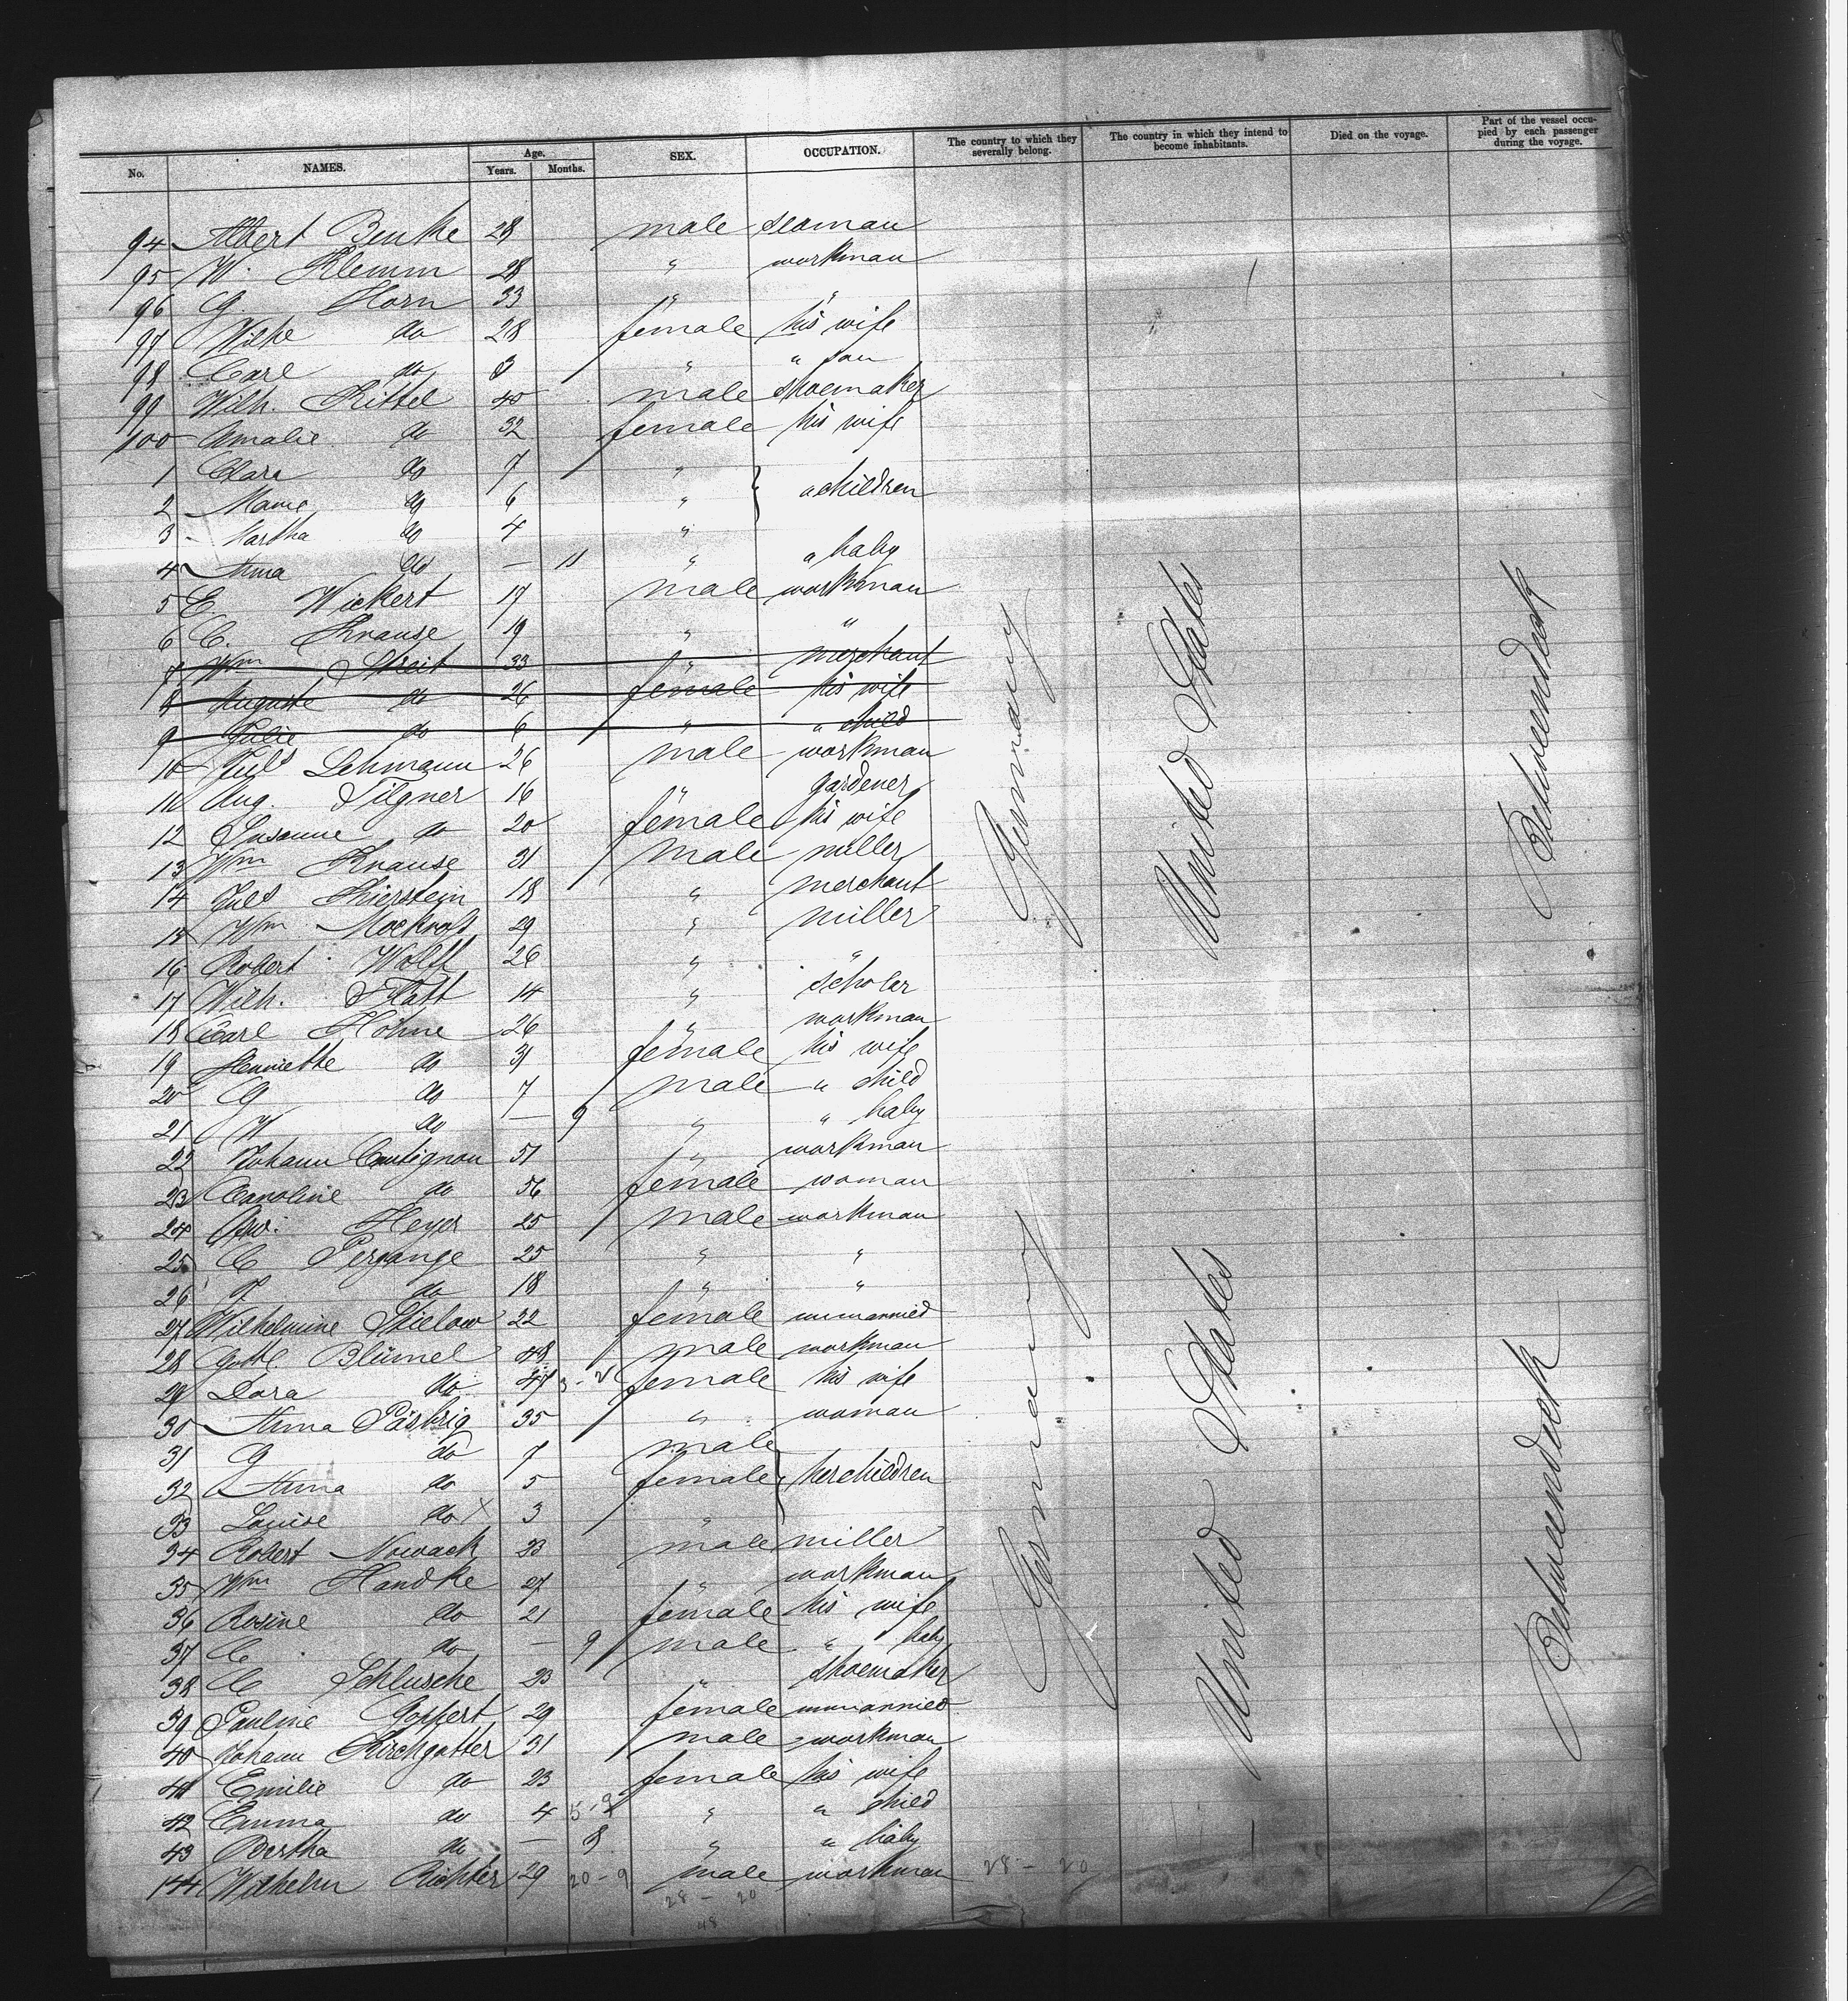 No. NAMES. Age. Years. Months. SEX. OCCUPATION. The country to which they severally belong. The country in which they intend to become inhabitants. Died on the voyage. Part of the vessel occupied by each passenger during the voyage.
94 Albert Benke 28 male seaman
95 W. Klemm 28 " workman
96 G. Horn 33 " "
97 Wilhe do 28 female his wife
98 Carl do 3 " " son
99 Wilh. Kittel 40 male shoemaker
100 Amalie do 32 female his wife
1 Clara do 7 "
2 do 6 " " children
3 Martha do 4 "
4 Anna do — 11 " " baby
5 E. Wickert 17 male workman
6 C. Krause 19 " "
7 Wm Streit 33 " merchant
8 Auguste do 26 female his wife
9 Julie do 6 " " child
10 Juls Lehmann 26 male workman
11 Aug. Tilgner 16 " gardener
12 Susanne do 20 female his wife
13 Wm Krause 31 male miller
14 Juls Thierstein 18 " merchant
15 Wm 29 " miller
16 Robert Wolff 26 " "
17 Wilh. Platt 14 " scholar
18 Carl Höhne 26 " workman
19 Henriette do 31 female his wife
20 G do 7 male " child
21 W do — 9 " " baby
22 Johann Cautignon 51 " workman
23 Caroline do 56 female woman
24 Heyer 25 male workman
25 C Pergange 25 " "
26 F do 18 " "
27 Wilhelmine Thielow 22 female unmarried
28 Gottl Blümel 48 male workman
29 Dora do 47 female his wife
30 Anna Päsbrig 35 " woman
31 G do 7 male
32 Anna do 5 female her children
33 Louise do X 3 "
34 Robert Nowack 23 male miller
35 Wm Handke 27 " workman
36 Rosine do 21 female his wife
37 C. do — 9 male " baby
38 C Schlusche 23 " shoemaker
39 Pauline Goppert 29 female unmarried
40 Johann Kirchgatter 31 male workman
41 Emilie do 23 female his wife
42 Emma do 4 5-9 " " child
43 Bertha do — 8 " " baby
144 Wilhelm Richter 29 20-9 male workman 28 - 20
28 - 20
48
Germany United States Betweendeck
Germany United States Betweendeck